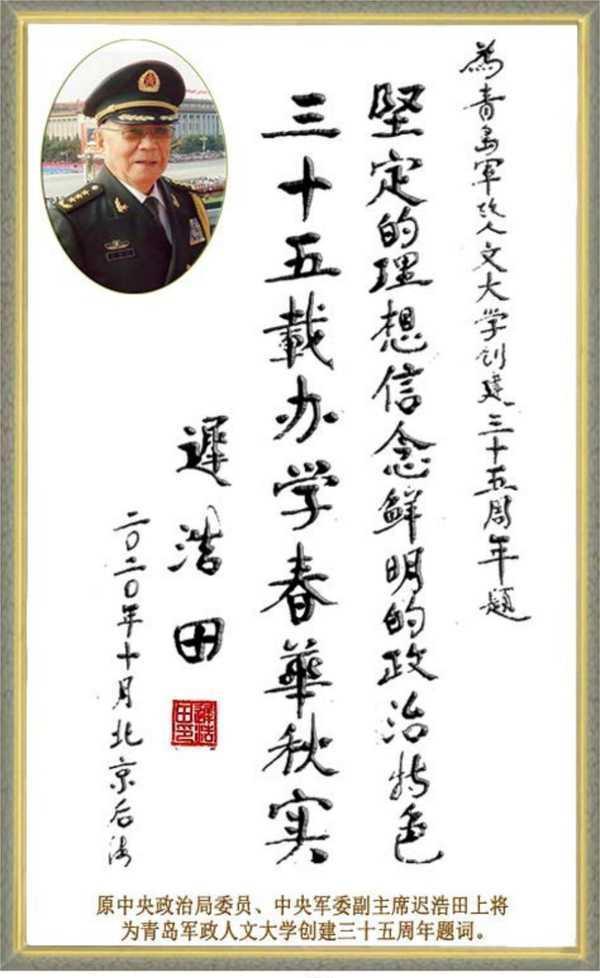 為青岛軍政人文大学创建三十五周年题
坚定的理想信念鲜明的政治特色
三十五載办学春華秋实
遲浩田
二〇二〇年十月北京后海
原中央政治局委员、中央军委副主席迟浩田上将
为青岛军政人文大学创建三十五周年题词。